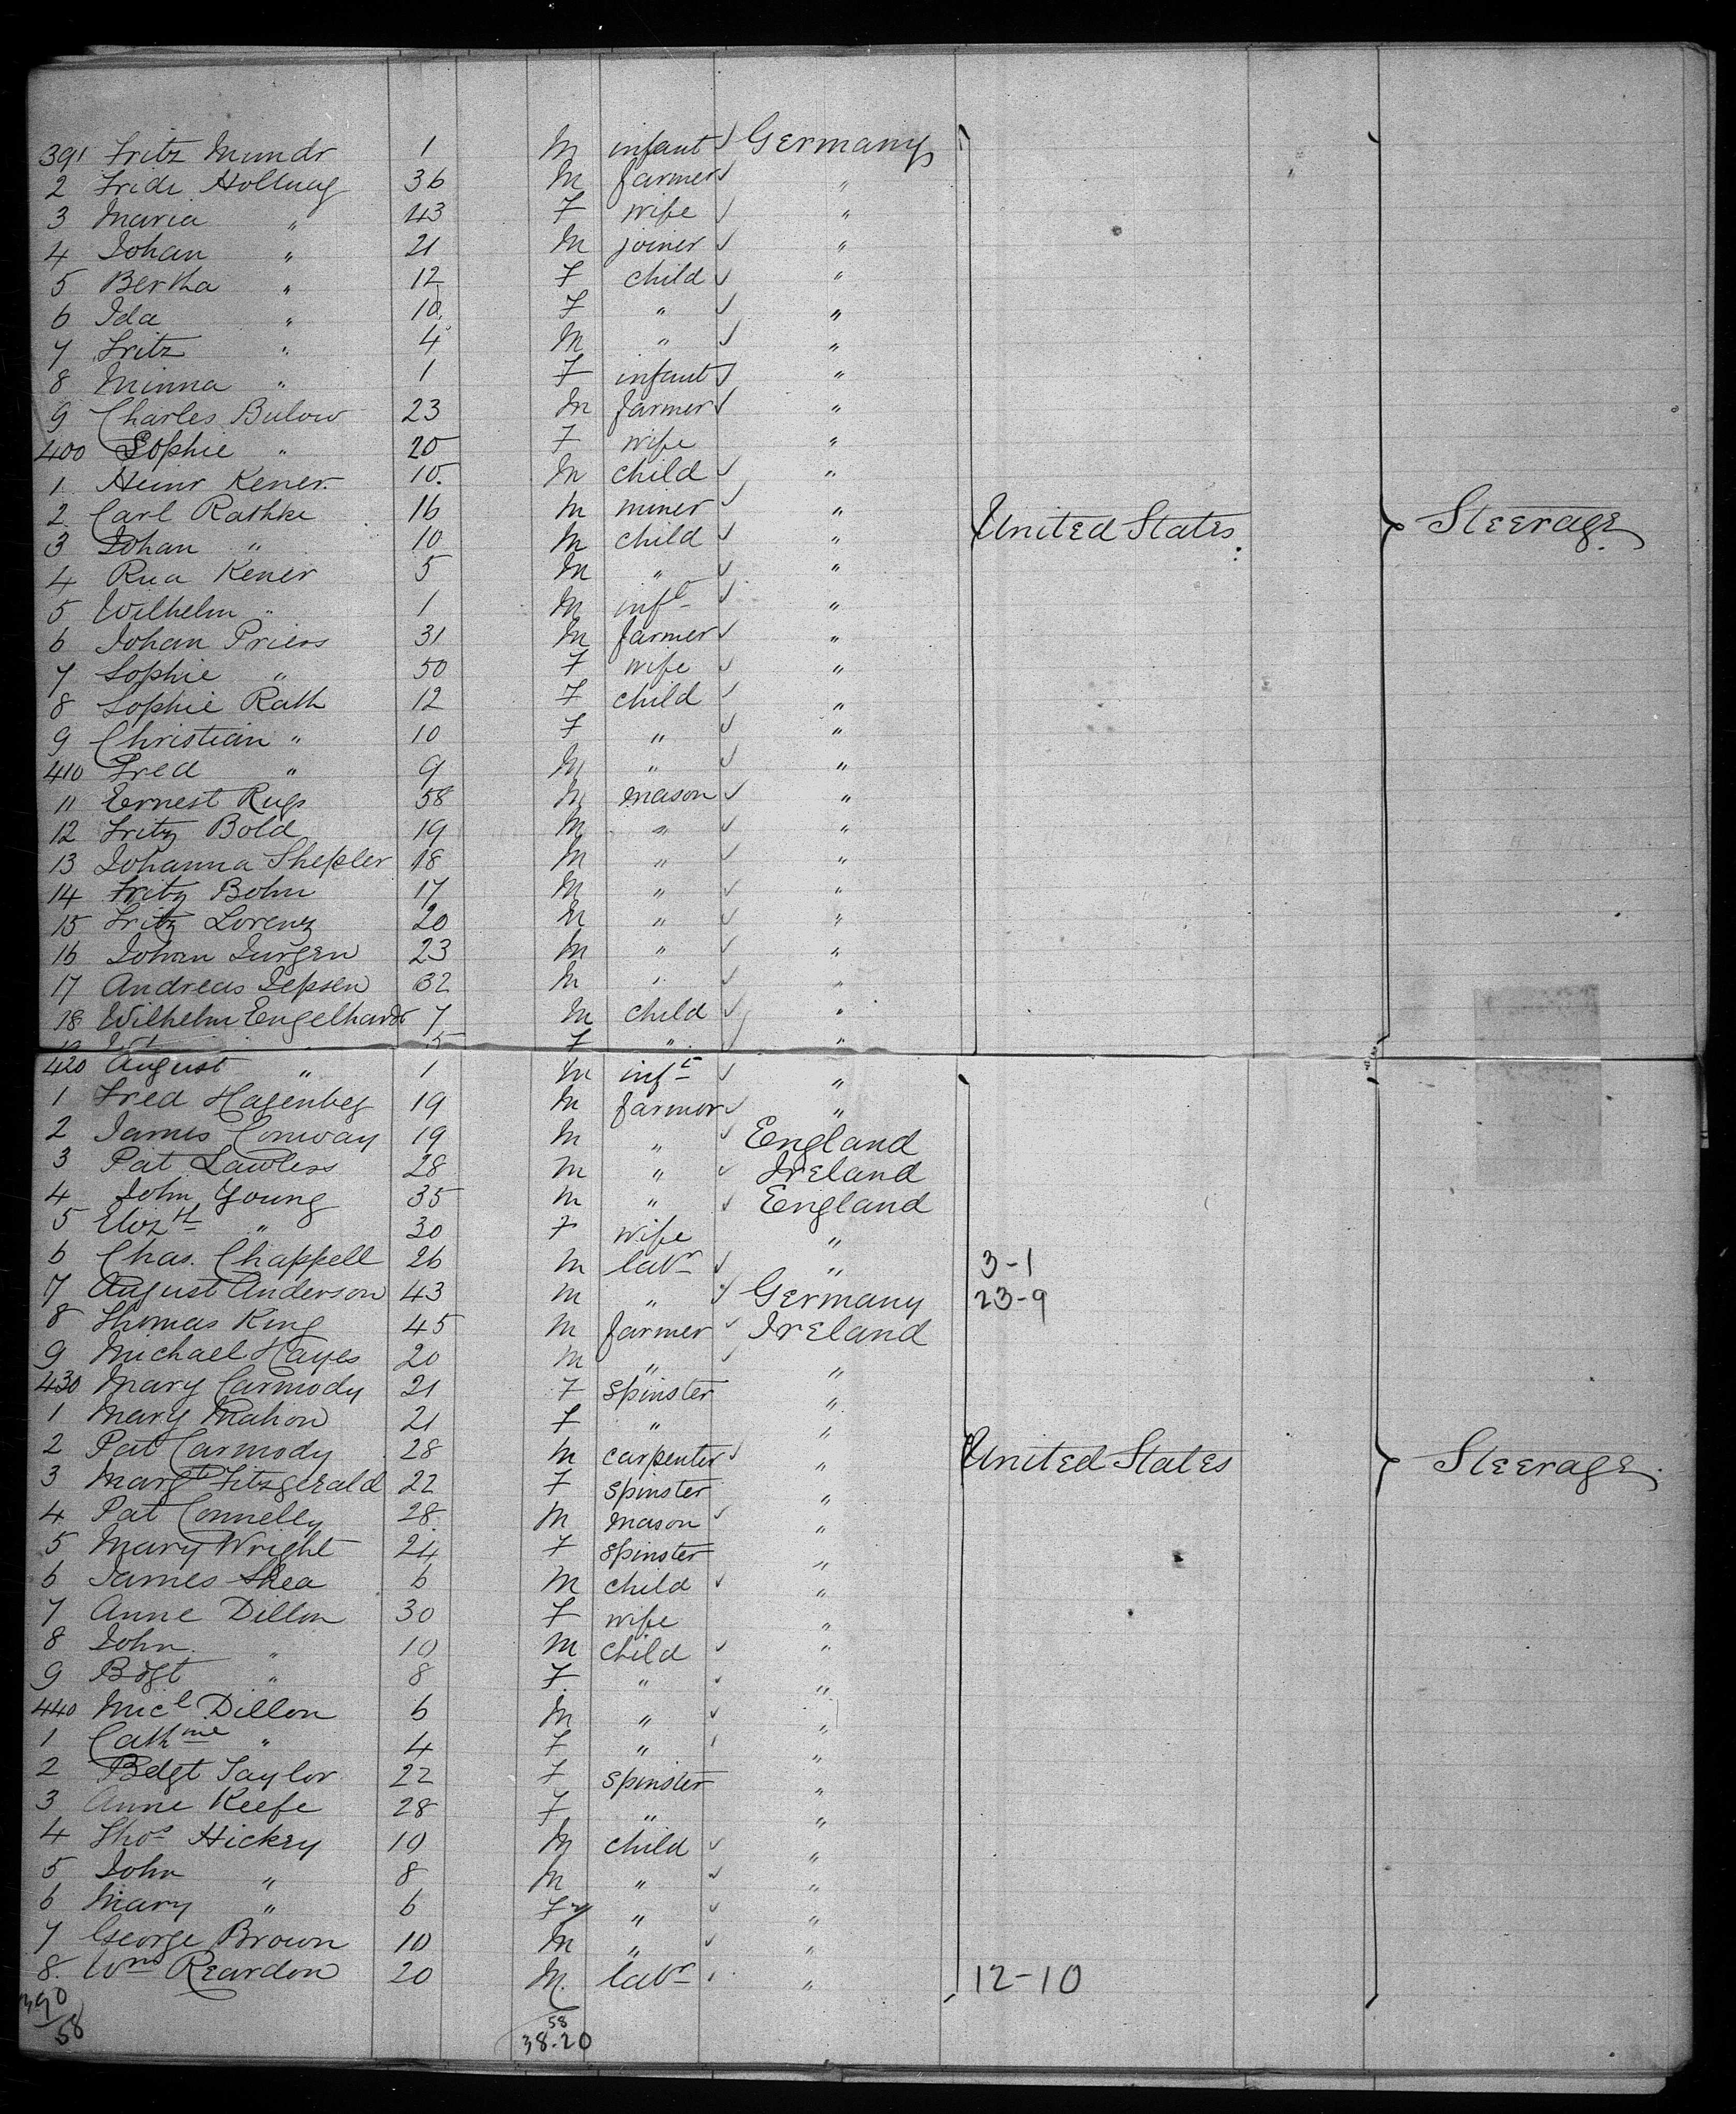 391 Fritz Mundt 1 M infant ✓ Germany
2 Fride Hollweg 36 M farmer ✓ "
3 Maria " 43 F wife ✓ "
4 Johan " 21 M joiner ✓ "
5 Bertha " 12 F child ✓ "
6 Ida " 10 F " ✓ "
7 Fritz " 4 M " ✓ "
8 Minna " 1 F infant ✓ "
9 Charles Bulow 23 M farmer ✓ "
400 Sophie " 20 F wife "
1 Heinr Kener 10 M child ✓ "
2 Carl Rathke 16 M miner ✓ " United States Steerage
3 Johan " 10 M child ✓ "
4 Rua Kener 5 M " ✓ "
5 Wilhelm " 1 M inft ✓ "
6 Johan Priess 31 M farmer ✓ "
7 Sophie " 50 F wife ✓ "
8 Sophie Rath 12 F child ✓ "
9 Christian " 10 F " ✓ "
410 Fred " 9 M " ✓ "
11 Ernest Rugs 58 M mason ✓ "
12 Fritz Bold 19 M " ✓ "
13 Johanna Shepler 18 M " ✓ "
14 Fritz Bohn 17 M " ✓ "
15 Fritz Lorenz 20 M " ✓ "
16 Johan Jurgen 23 M " ✓ "
17 Andreas Jepsen 32 M " ✓ "
18 Wilhelm Engelhardt 7 M child ✓ "
5 F " ✓ "
420 August " 1 M inft ✓ "
1 Fred Hagenbeg 19 M farmer ✓ "
2 James Conway 19 M " ✓ England
3 Pat Lawless 28 M " ✓ Ireland
4 John Young 35 M " ✓ England
5 Elizth " 30 F wife "
6 Chas. Chappell 26 M labr ✓ " 3-1
7 August Anderson 43 M " ✓ Germany 23-9
8 Thomas King 45 M farmer ✓ Ireland
9 Michael Hayes 20 M " ✓ "
430 Mary Carmody 21 F spinster "
1 Mary Mahon 21 F " "
2 Pat Carmody 28 M carpenter ✓ " United States Steerage
3 Margt Fitzgerald 22 F spinster "
4 Pat Connelly 28 M mason ✓ "
5 Mary Wright 24 F spinster "
6 James Shea 6 M child ✓ "
7 Anne Dillon 30 F wife "
8 John " 10 M child ✓ "
9 Bdgt " 8 F " ✓ "
440 Micl Dillon 6 M " ✓ "
1 Cathne " 4 F " ✓ "
2 Bdgt Taylor 22 F spinster "
3 Anne Keefe 28 F " "
4 Thos Hickey 10 M child ✓ "
5 John " 8 M " ✓ "
6 Mary " 6 F " ✓ "
7 George Brown 10 M " ✓ "
8 Wm Reardon 20 M labr ✓ " 12-10
390
58
58
38.20